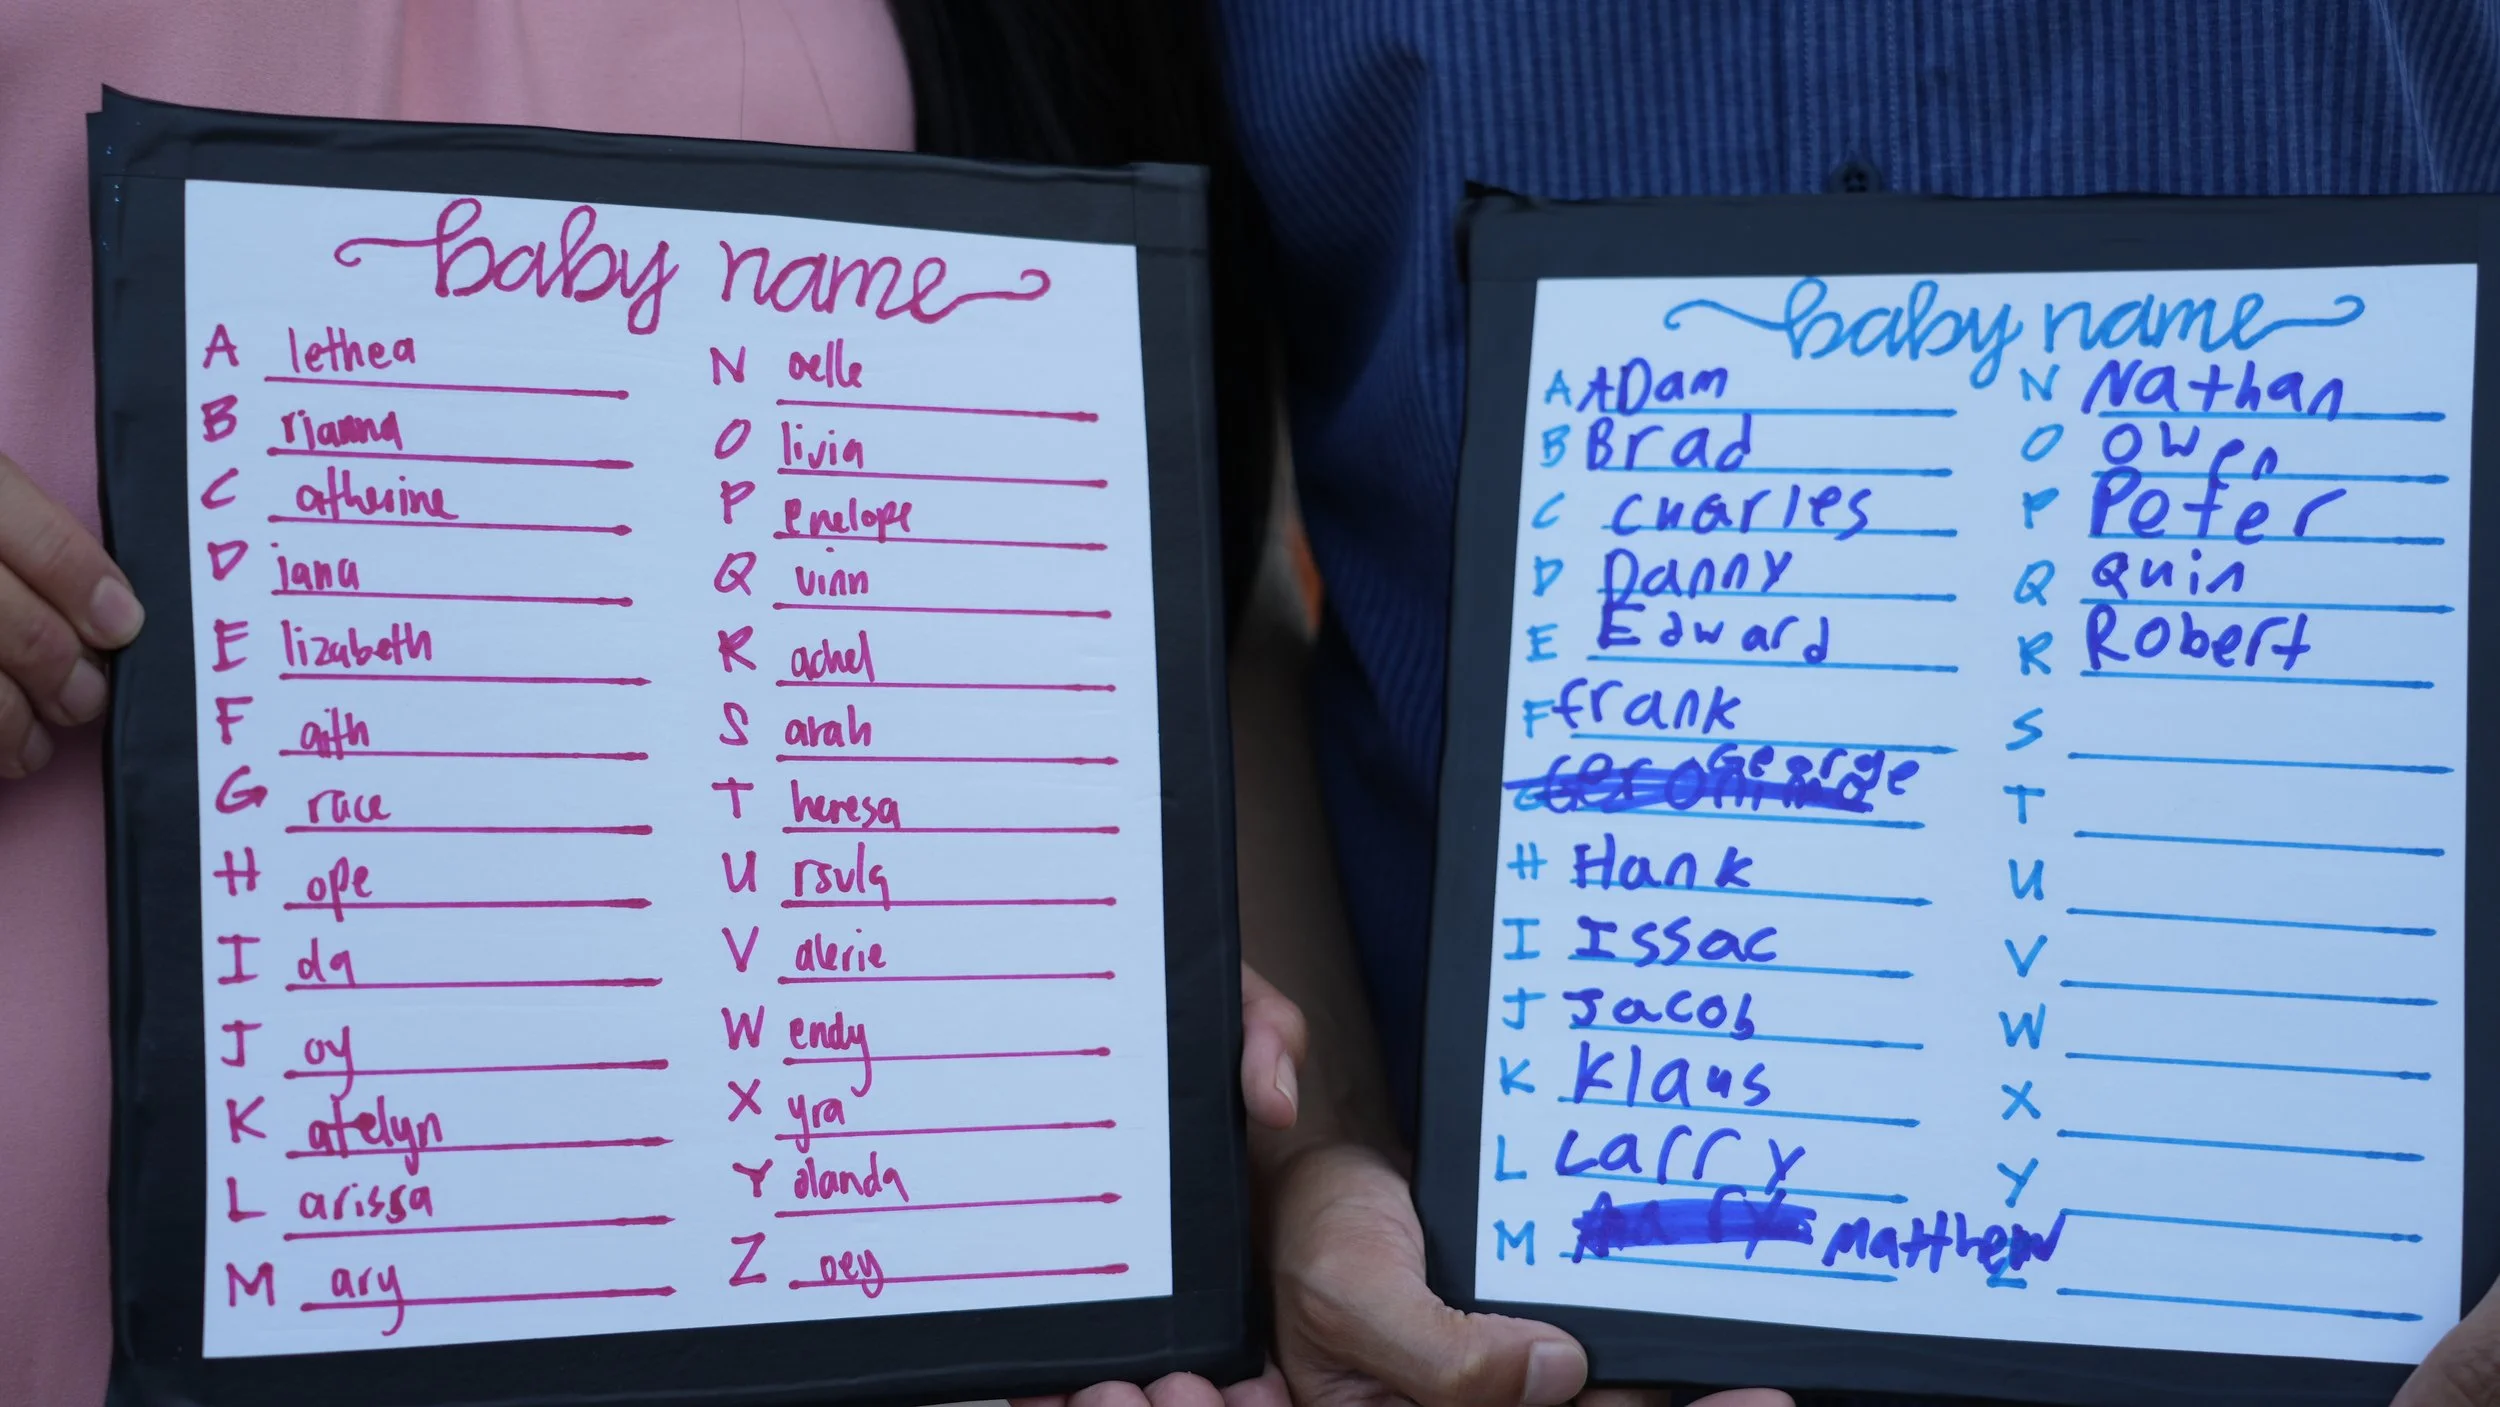 baby name
A lethea
B rianna
C atherine
D iana
E lizabeth
F aith
G race
H ope
I da
J oy
K atelyn
L arissa
M ary
N oelle
O livia
P enelope
Q uinn
R achel
S arah
T heresa
U rsula
V alerie
W endy
X yra
Y olanda
Z oey
baby name
A ADam
B Brad
C Charles
D Danny
E Edward
F frank
G Geronimo George
H Hank
I Issac
J Jacob
K Klaus
L Larry
M Matthew
N Nathan
O Owen
P Peter
Q Quin
R Robert
S
T
U
V
W
X
Y
Z